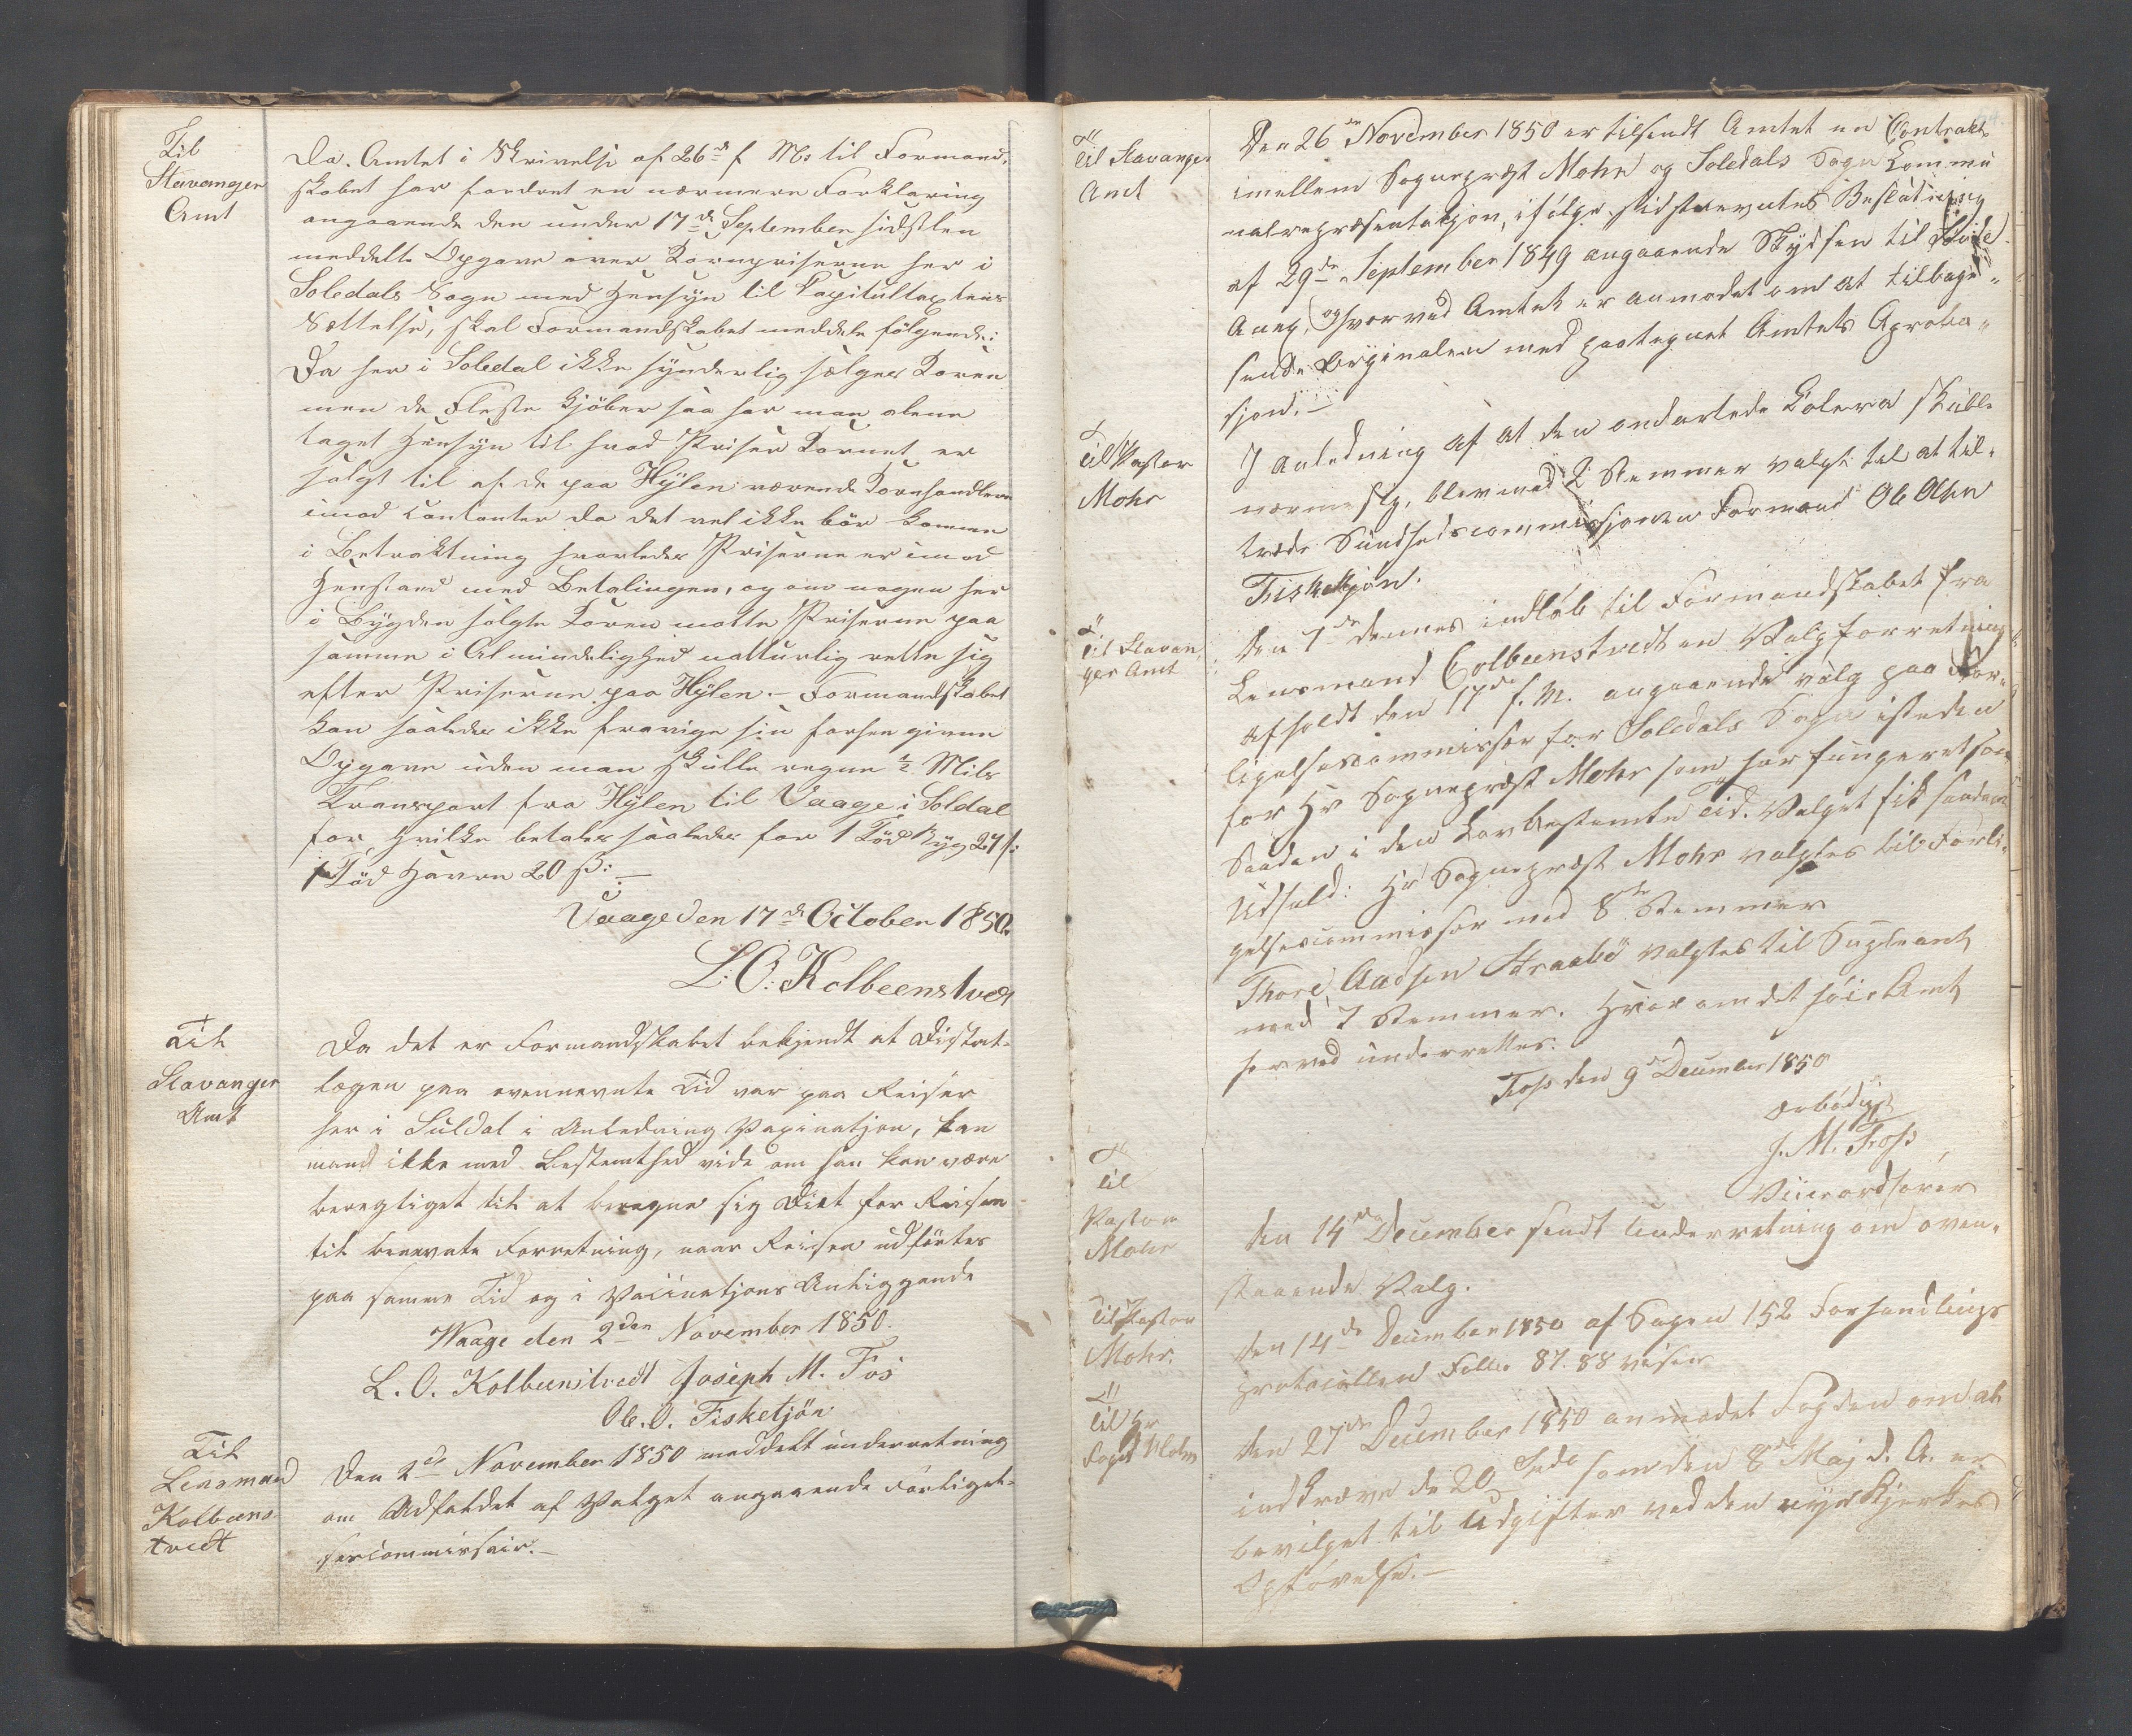 Til
Stavanger
Amt
Da Amtet i Skrivelse af 26de f M: til Formand-
skabet har fordret en nærmere Forklaring
angaaende den under 17de September sidstlen
meddelte Opgave over Kornpriserne her i
Soledals Sogn med Hensyn til Capitultaxtens
Sættelse, skal Formandskabet meddele følgende:
Da her i Soledal ikke synderlig sælges Koren
men de Fleste kjöber saa har man alene
taget Hensyn til hvad Priser Kornet er
solgt til af de paa Hÿlen værende Kornhandlere
imod Contanter da det vel ikke bör komme
i Betraktning hvorledes Priserne er imod
Henstand med Betalingen, og om nogen her
i Bÿgden solgte Koren motte Priserne paa
samme i Almindelighed natturlig rette sig
efter Priserne paa Hÿlen. – Formandskabet
kan saaledes ikke fravige sin forhen givne
Opgave uden man skulle regne ½ Mils
Transport fra Hÿlen til Vaage i Soldal
for, hvilke betales saaledes for 1 Töd Byg 24 ß:
1 Töd Havre 20 ß: –
Vaage den 17de October 1850.
L: O: Kolbeenstvedt
Til
Stavanger
Amt
Da det er Formandskabet bekjendt at Distrikt-
lægen paa ovennevnte Tid var paa Reiser
her i Suldal i Anledning Vaxinatjon, kan
mand ikke med Bestemthed vide om han kan være
beregtiget til at beregne sig Diet for Reisen
til benevnte Forretning, naar Reisen udförtes
paa samme Tid og i Vaccinatjons Anliggende
Waage den 2den November 1850.
L. O. Kolbeenstvedt Joseph M. Fos
Ole. O. Fisketjön
Til
Lensmand
Kolbeens
tvedt
Den 2de November 1850 meddelt underretning
om Udfaldet af Valget angaaende Forligel-
sescommissair. –
Til Stavanger
Amt
Den 26de November 1850 er tilsendt Amtet en Contrakt
imellem Sogneprest Mohr og Soledals Sogn Commu
nalrepræsentasjon, ifölge sidstnevntes Beslutning
af 29de September 1849 angaaende Skydsen til
Anex, og hvorved Amtet er anmodet om at tilbage-
sende Orginalen med paategnet Amtets Aproba-
sjon. –
Til Pastor
Mohr
I anledning af at den ondartede Colera skulle
nærme sig, blev med 2 Stemmer valgt til at til-
træde Sundhedscommissjonen Formand Ole Olsen
Fisketjön.
Til Stavan
ger Amt
Den 7de dennes indlöb til Formandskabet fra
Lensmand Colbeenstvedt en Valgforretning
afholdt den 17de f. M. angaaende valg paa For-
ligelsescommissær for Soledals Sogn isteden
for Hr Sogneprest Mohr som har fungeret som
Saadan i den Lovbestemte Tid. Valget fik saadan
Udfald: Hr Sogneprest Mohr valgtes til Forli-
gelsescommissær med 8te Stemmer
Thore Aadsen Straabö valgtes til Supleant
med 7 Stemmer. Hvorom det höie Amt
herved underrettes.
Foss den 9de December 1850
Ærbödigst
J. M. Foss
Viceordförer
Til
Pastor
Mohr
Den 14de December sendt Underretning om oven-
staaende Valg.
Til Pastor
Mohr.
Den 14de December 1850 af Sagen 152 Forhandlings
protocollen Follio 87. 88 viser
Til Hr
Foged Mohn
Den 27de December 1850 anmodet Fogden om at
indkræve de 20 Spd som den 8de Maj d. A. er
bevilget til Udgifter ved den nye Kjerkes
Opförelse. –